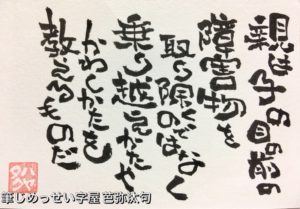 親は子の目の前の
障害物を
取り除くのではなく
乗り越えかたや
かわしかたを
教えるものだ
筆じめっせい字屋 芭弥汰句
バヤタク